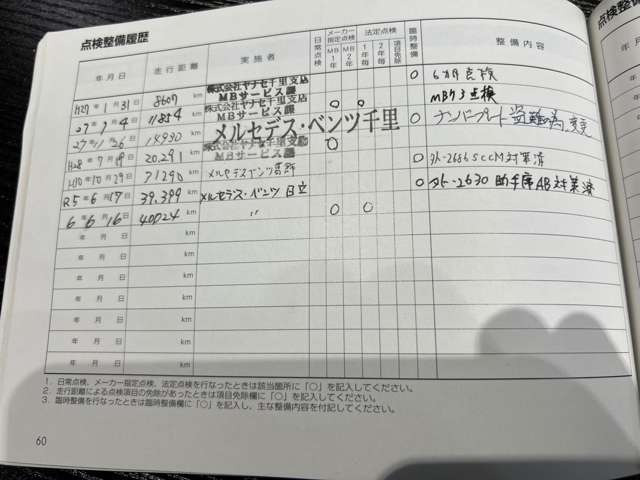 点検整備履歴
年月日 走行距離 実施者 日常点検 メーカー指定点検 MB1年 MB2年 法定点検 1年毎 2年毎 項目免除 臨時整備 整備内容
H27年1月31日 8607km 株式会社ヤナセ千里支店 MBサービス課 ○ 6ヵ月点検
27年7月4日 11854km 株式会社ヤナセ千里支店 MBサービス課 ○ ○ MBケア点検
26日 km メルセデス・ベンツ千里 ○ ナンバープレート
H28年7月 20,291km 株式会社ヤナセ千里支店 MBサービス課 ○
10月29日 31290km メルセデスベンツ ○ 対策済
R5年6月17日 39,399km メルセデス・ベンツ 日立 ○ 外-2630 助手席AB対策済
6年6月16日 40024km 〃 ○ ○
年 月 日 km
年 月 日 km
年 月 日 km
年 月 日 km
年 月 日 km
年 月 日 km
年 月 日 km
1. 日常点検、メーカー指定点検、法定点検を行なったときは該当箇所に「○」を記入してください。
2. 走行距離による点検項目の免除があったときは項目免除欄に「○」を記入してください。
3. 臨時整備を行なったときは臨時整備欄に「○」を記入し、主な整備内容を付記してください。
60
点検整備
年月